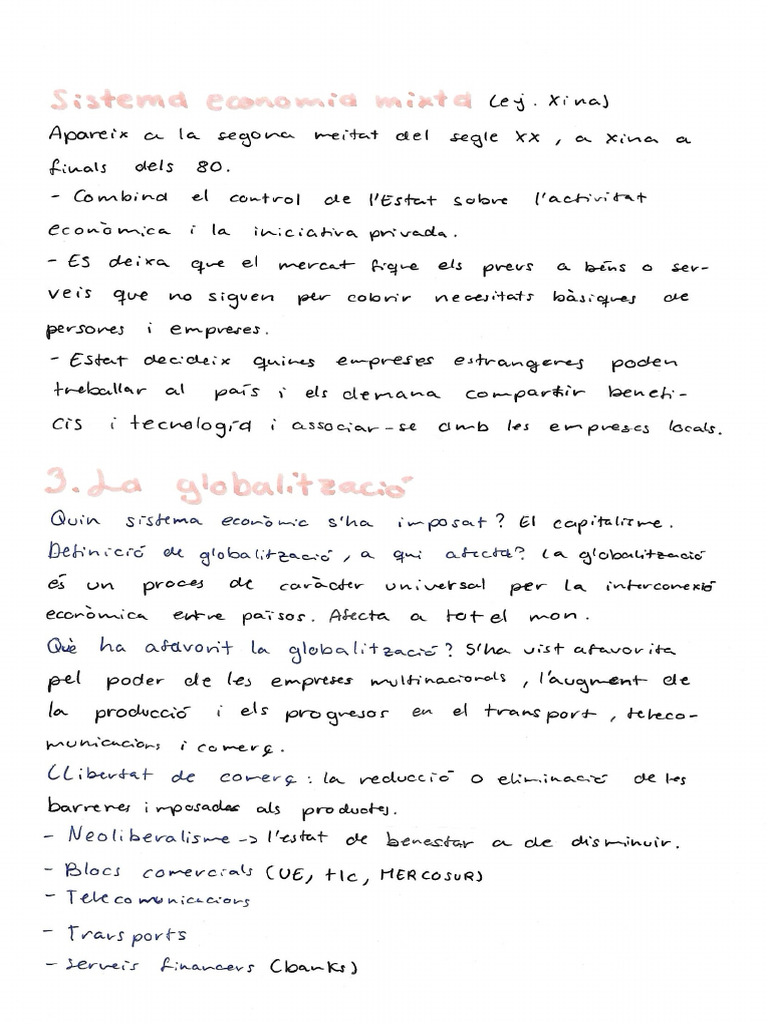 Sistema economia mixta (ej. Xina)
Apareix a la segona meitat del segle XX, a xina a
finals dels 80.
- Combina el control de l'Estat sobre l'activitat
econòmica i la iniciativa privada.
- Es deixa que el mercat fique els preus a béns o ser-
veis que no siguen per cobrir necesitats bàsiques de
persones i empreses.
- Estat decideix quines empreses estrangeres poden
treballar al país i els demana compartir benefi-
cis i tecnología i associar-se amb les empreses locals.
3. La globalització
Quin sistema econòmic s'ha imposat? El capitalisme.
Definició de globalització, a qui afecta? La globalització
és un proces de caràcter universal per la interconexió
econòmica entre països. Afecta a tot el mon.
Què ha afavorit la globalització? S'ha vist afavorita
pel poder de les empreses multinacionals, l'augment de
la producció i els progresos en el transport, teleco-
municacions i comerç.
Llibertat de comerç: la reducció o eliminació de les
barreres imposades als productes.
- Neoliberalisme -> l'estat de benestar a de disminuir.
- Blocs comercials (UE, tlc, MERCOSUR)
- Telecomunicacions
- Transports
- Serveis financers (banks)